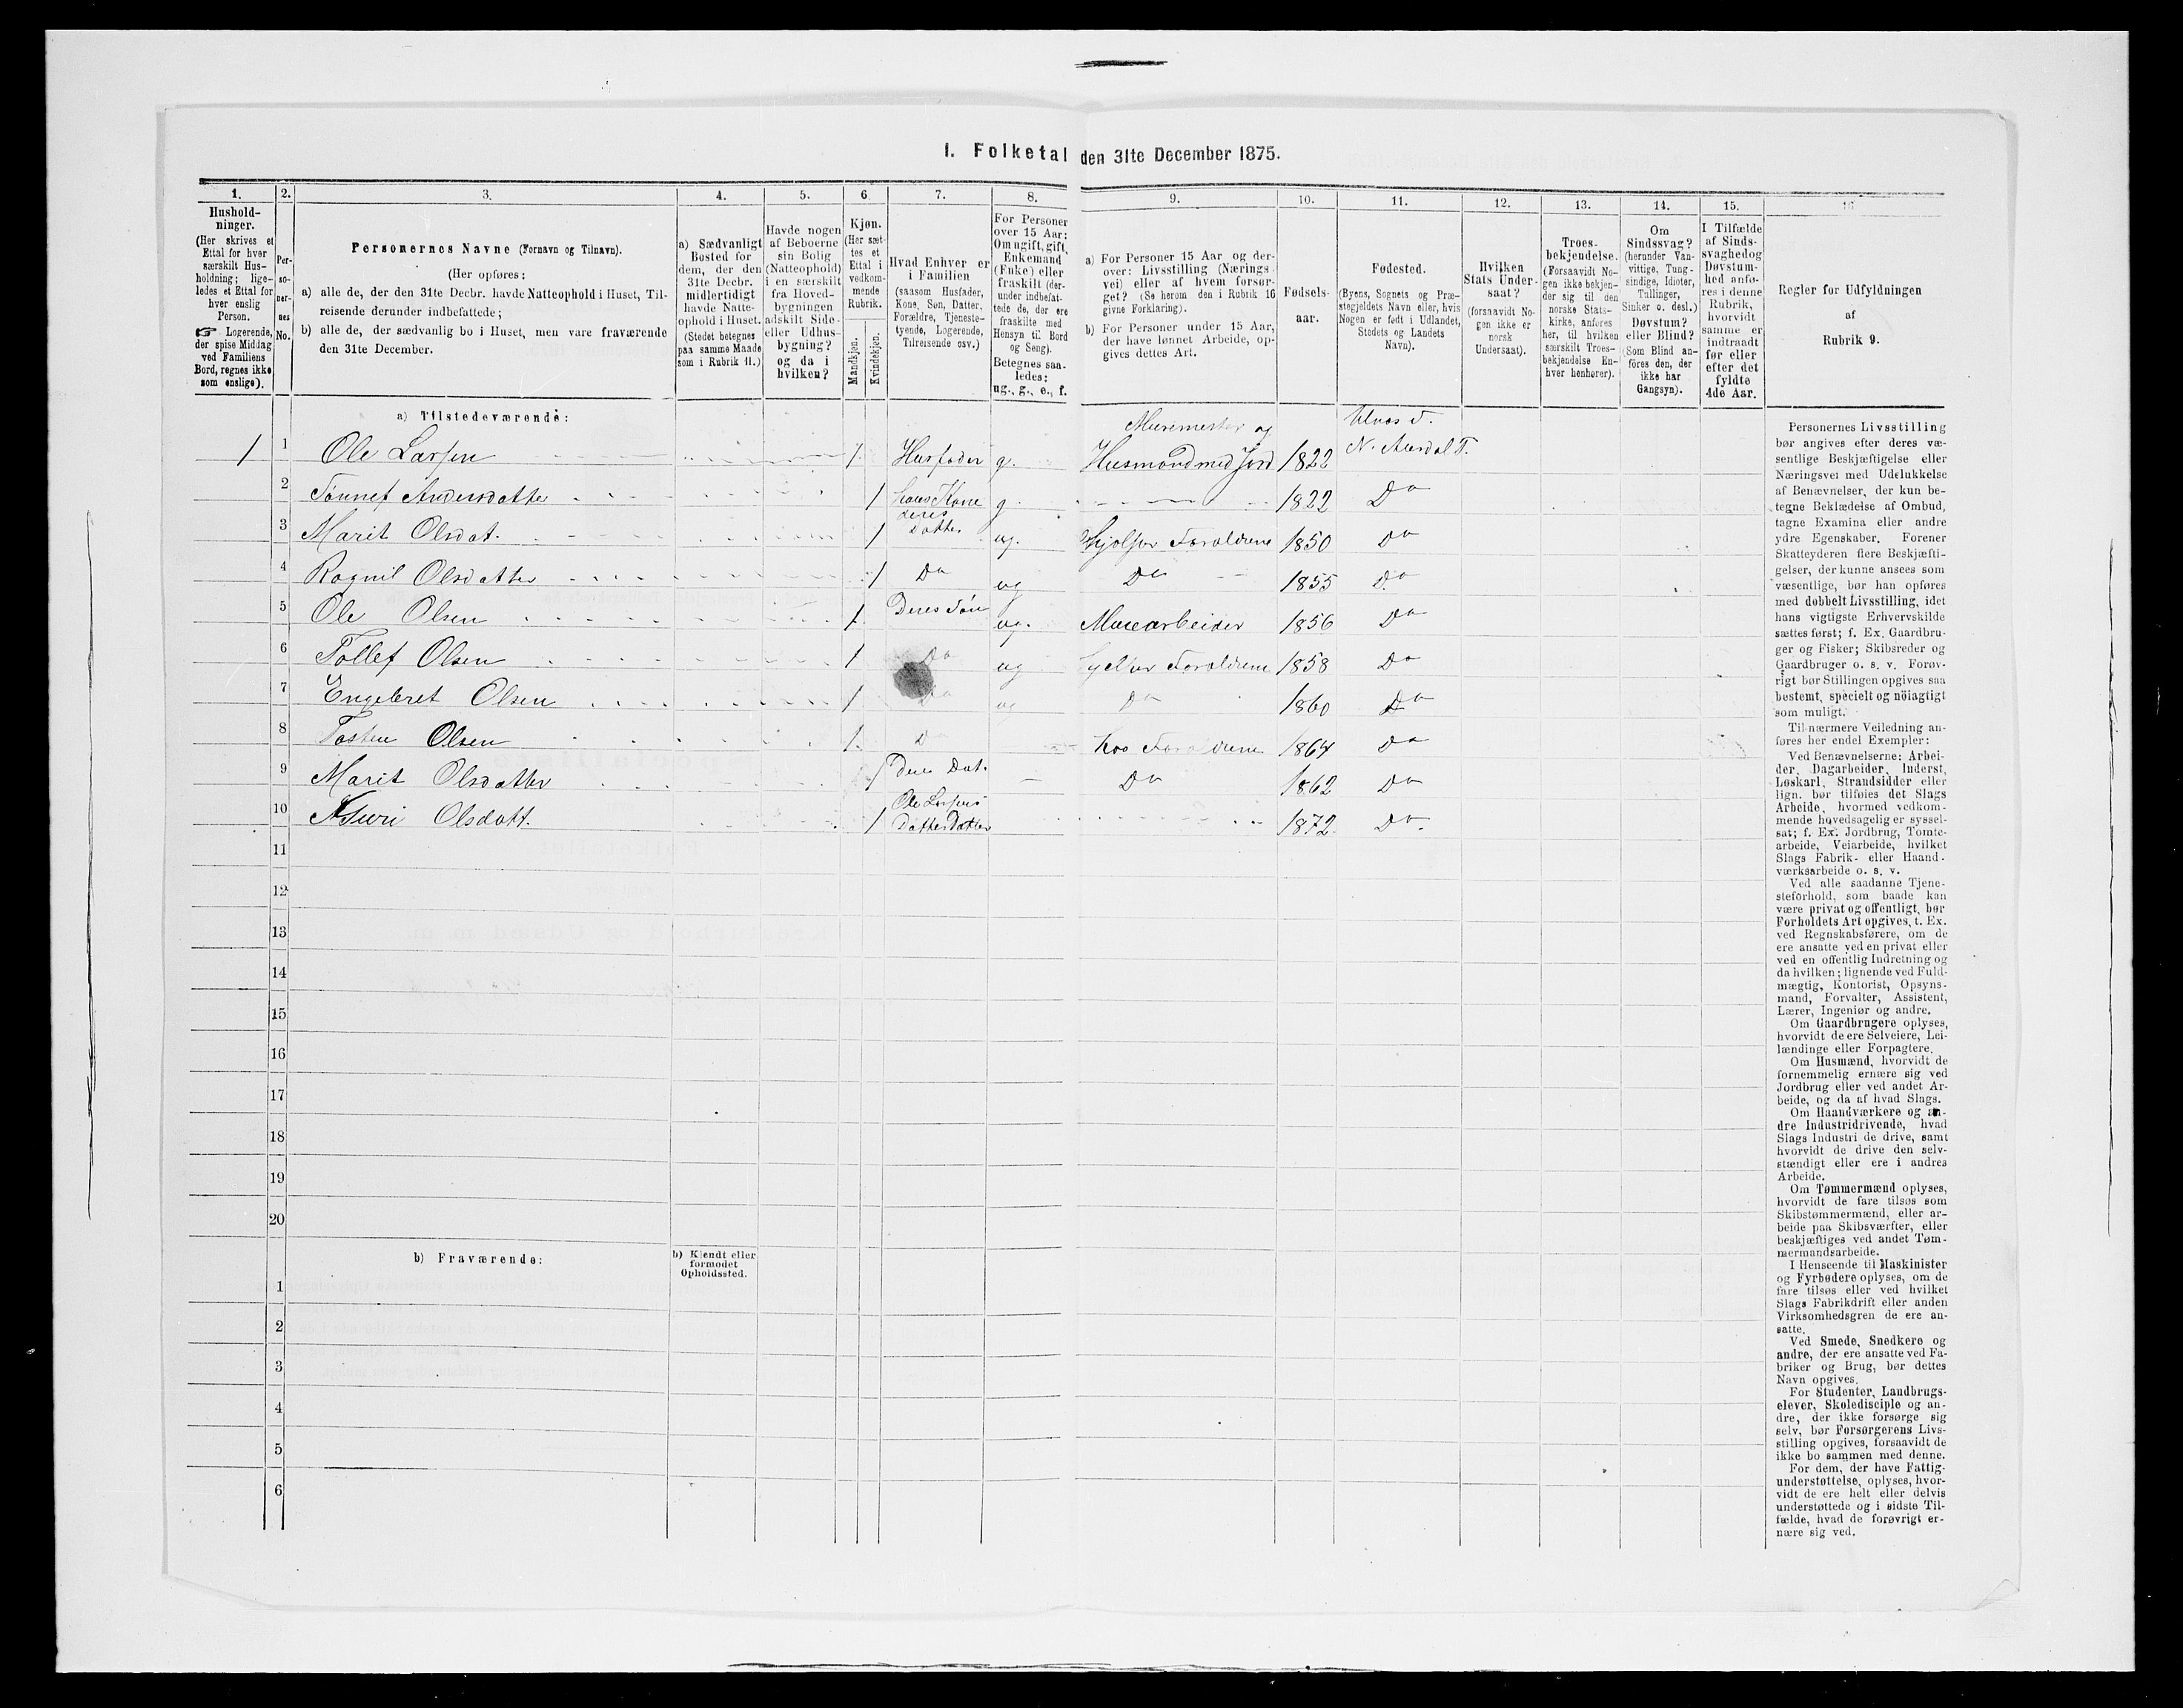 I. Folketal den 31te December 1875.
1.
Hushold-
ninger.
(Her skrives et
Ettal for hver
særskilt Hus-
holdning; lige-
ledes et Ettal for
hver enslig
Person.
☞ Logerende,
der spise Middag
ved Familiens
Bord, regnes ikke
som enslige).
2.
Per-
so-
ner-
nes
No.
3.
Personernes Navne (Fornavn og Tilnavn).
(Her opføres:
a) alle de, der den 31te Decbr. havde Natteophold i Huset, Til-
reisende derunder indbefattede;
b) alle de, der sædvanlig bo i Huset, men vare fraværende
den 31te December.
4.
a) Sædvanligt
Bosted for
dem, der den
31te Decbr.
midlertidigt
havde Natte-
ophold i Huset.
(Stedet betegnes
paa samme Maade
som i Rubrik 11.)
5.
Havde nogen
af Beboerne
sin Bolig
(Natteophold)
i en særskilt
fra Hoved-
bygningen
adskilt Side-
eller Udhus-
bygning?
og da i
hvilken?
6.
Kjøn.
(Her sæt-
tes et
Ettal i
vedkom-
mende
Rubrik.
Mandkjøn.
Kvindekjøn.
7.
Hvad Enhver er
i Familien
(saasom Husfader,
Kone, Søn, Datter,
Forældre, Tjeneste-
tyende, Logerende,
Tilreisende osv.)
8.
For Personer
over 15 Aar:
Om ugift, gift,
Enkemand
(Enke) eller
fraskilt (der-
under indbefat-
tede de, der ere
fraskilte med
Hensyn til Bord
og Seng).
Betegnes saa-
ledes:
ug., g., e., f.
9.
a) For Personer 15 Aar og der-
over: Livsstilling (Nærings-
vei) eller af hvem forsør-
get? (Se herom den i Rubrik 16
givne Forklaring).
b) For Personer under 15 Aar,
der have lønnet Arbeide, op-
gives dettes Art.
10.
Fødsels-
aar.
11.
Fødested.
(Byens, Sognets og Præ-
stegjeldets Navn eller, hvis
Nogen er født i Udlandet,
Stedets og Landets
Navn).
12.
Hvilken
Stats Under-
saat?
(forsaavidt No-
gen ikke er
norsk
Undersaat).
13.
Troes-
bekjendelse.
(Forsaavidt No-
gen ikke bekjen-
der sig til den
norske Stats-
kirke, anføres
her, til hvilken
særskilt Troes-
bekjendelse En-
hver henhører).
14.
Om
Sindssvag?
(herunder Van-
vittige, Tung-
sindige, Idioter,
Tullinger,
Sinker o. desl.)
Døvstum?
eller Blind?
(Som Blind an-
føres den, der
ikke har
Gangsyn).
15.
I Tilfælde
af Sinds-
svaghed og
Døvstum-
hed anfø-
res i denne
Rubrik,
hvorvidt
samme er
indtraadt
før eller
efter det
fyldte
4de Aar.
16
Regler for Udfyldningen
af
Rubrik 9.
a) Tilstedeværende:
1 1 Ole Larsen 1. Husfader g. Muremester og Husmand med Jord 1822 Ulnæs S. N. Aurdal P.
2 Tønnef Andersdatter 1 hans Kone g 1822 Do
3 Marit Olsdat. 1 deres Datter ug. Hjelper Forældrene 1850 Do
4 Ragnil Olsdatter 1 Do ug Do 1855 Do
5 Ole Olsen 1. Deres Søn ug. Murarbeider 1856 Do
6 Tollef Olsen 1 Do ug Hjelper Forældrene 1858 Do
7 Engebret Olsen 1 Do ug Do 1860 Do
8 Tosten Olsen 1. Do Hos Forældrene 1864 Do
9 Marit Olsdatter 1 Deres Dat. Do 1862 Do
10 Guri Olsdatt. 1 Ole Larsens Datter Datter 1872 Do
11
12
13
14
15
16
17
18
19
20
b) Fraværende:
b) Kjendt eller
formodet
Opholdssted.
1
2
3
4
5
6
Personernes Livsstilling
bør angives efter deres væ-
sentlige Beskjæftigelse eller
Næringsvei med Udelukkelse
af Benævnelser, der kun be-
tegne Beklædelse af Ombud,
tagne Examina eller andre
ydre Egenskaber. Forener
Skatteyderen flere Beskjæfti-
gelser, der kunne ansees som
væsentlige, bør han opføres
med dobbelt Livsstilling, idet
hans vigtigste Erhvervskilde
sættes først; f. Ex. Gaardbru-
ger og Fisker; Skibsreder og
Gaardbruger o. s. v. Forøv-
rigt bør Stillingen opgives saa
bestemt, specielt og nøiagtigt
som muligt.
Til nærmere Veiledning an-
føres her endel Exempler:
Ved Benævnelserne: Arbei-
der, Dagarbeider, Inderst,
Løskarl, Strandsidder eller
lign. bør tilføies det Slags
Arbeide, hvormed vedkom-
mende hovedsagelig er syssel-
sat; f. Ex. Jordbrug, Tomte-
arbeide, Veiarbeide, hvilket
Slags Fabrik- eller Haand-
værksarbeide o. s. v.
Ved alle saadanne Tjene-
steforhold, som baade kan
være privat og offentligt, bør
Forholdets Art opgives, t. Ex.
ved Regnskabsførere, om de
ere ansatte ved en privat eller
ved en offentlig Indretning og
da hvilken; lignende ved Fuld-
mægtig, Kontorist, Opsyns-
mand, Forvalter, Assistent,
Lærer, Ingeniør og andre.
Om Gaardbrugere oplyses,
hvorvidt de ere Selveiere, Lei-
lændinge eller Forpagtere.
Om Husmænd, hvorvidt de
fornemmelig ernære sig ved
Jordbrug eller ved andet Ar-
beide, og da af hvad Slags.
Om Haandværkere og an-
dre Industridrivende, hvad
Slags Industri de drive, samt
hvorvidt de drive den selv-
stændigt eller ere i andres
Arbeide.
Om Tømmermænd oplyses,
hvorvidt de fare tilsøs som
Skibstømmermænd, eller ar-
beide paa Skibsværfter, eller
beskjæftiges ved andet Tøm-
mermandsarbeide.
I Henseende til Maskinister
og Fyrbødere oplyses, om de
fare tilsøs eller ved hvilket
Slags Fabrikdrift eller anden
Virksomhedsgren de ere an-
satte.
Ved Smede, Snedkere og
andre, der ere ansatte ved Fa-
briker og Brug, bør dettes
Navn opgives.
For Studenter, Landbrugs-
elever, Skoledisciple og an-
dre, der ikke forsørge sig
selv, bør Forsørgerens Livs-
stilling opgives, forsaavidt de
ikke bo sammen med denne.
For dem, der have Fattig-
understøttelse, oplyses, hvor-
vidt de ere helt eller delvis
understøttede og i sidste Til-
fælde, hvad de forøvrigt er-
nære sig ved.